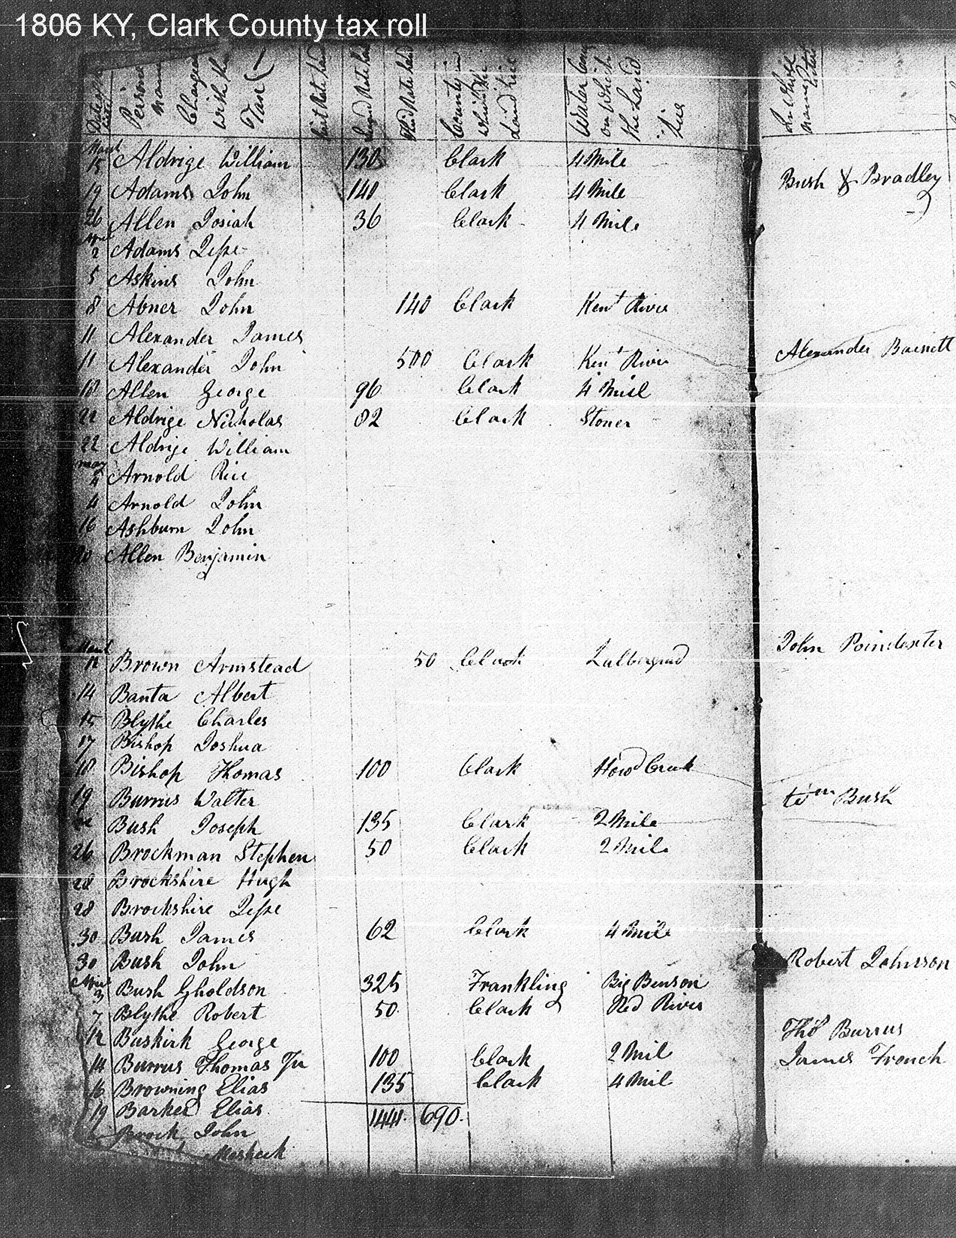 1806 KY, Clark County tax roll
Persons names Charged with the Tax
first Rate land
Second Rate land
Third Rate land
County in which the Land lies
Water Course on Which the Land lies
In Whose name
15 Aldrige William 130 Clark 4 Mile Bush & Bradley
19 Adams John 140 Clark 4 Mile
26 Allen Josiah 36 Clark 4 Mile
2 Adams Jesse
5 Askins John
8 Abner John 140 Clark Kent River
11 Alexander James
11 Alexander John 500 Clark Kent River Alexander Barnett
18 Allen George 96 Clark 4 Mile
21 Aldrige Nicholas 82 Clark Stoner
22 Aldrige William
may
Arnold Rice
4 Arnold John
16 Ashburn John
20 Allen Benjamin
12 Brown Armstead 50 Clark Lulbegrud John Poindexter
14 Banta Albert
15 Blythe Charles
17 Bishop Joshua
18 Bishop Thomas 100 Clark Howd Creek
19 Burrus Walter Wm Bush
Bush Joseph 135 Clark 2 Mile
26 Brockman Stephen 50 Clark 2 Mile
28 Brockshire Hugh
28 Brockshire Jesse
30 Bush James 62 Clark 4 Mile
30 Bush John Robert Johnson
3 Bush Gholdson 325 Frankling Big Benson
7 Blythe Robert 50 Clark Red River
12 Buskirk George Thos Burrus
14 Burrus Thomas Jr 100 Clark 2 Mil James French
16 Browning Elias 135 Clark 4 Mil
19 Barker Elias 1441 690
Brock John
Mesheck